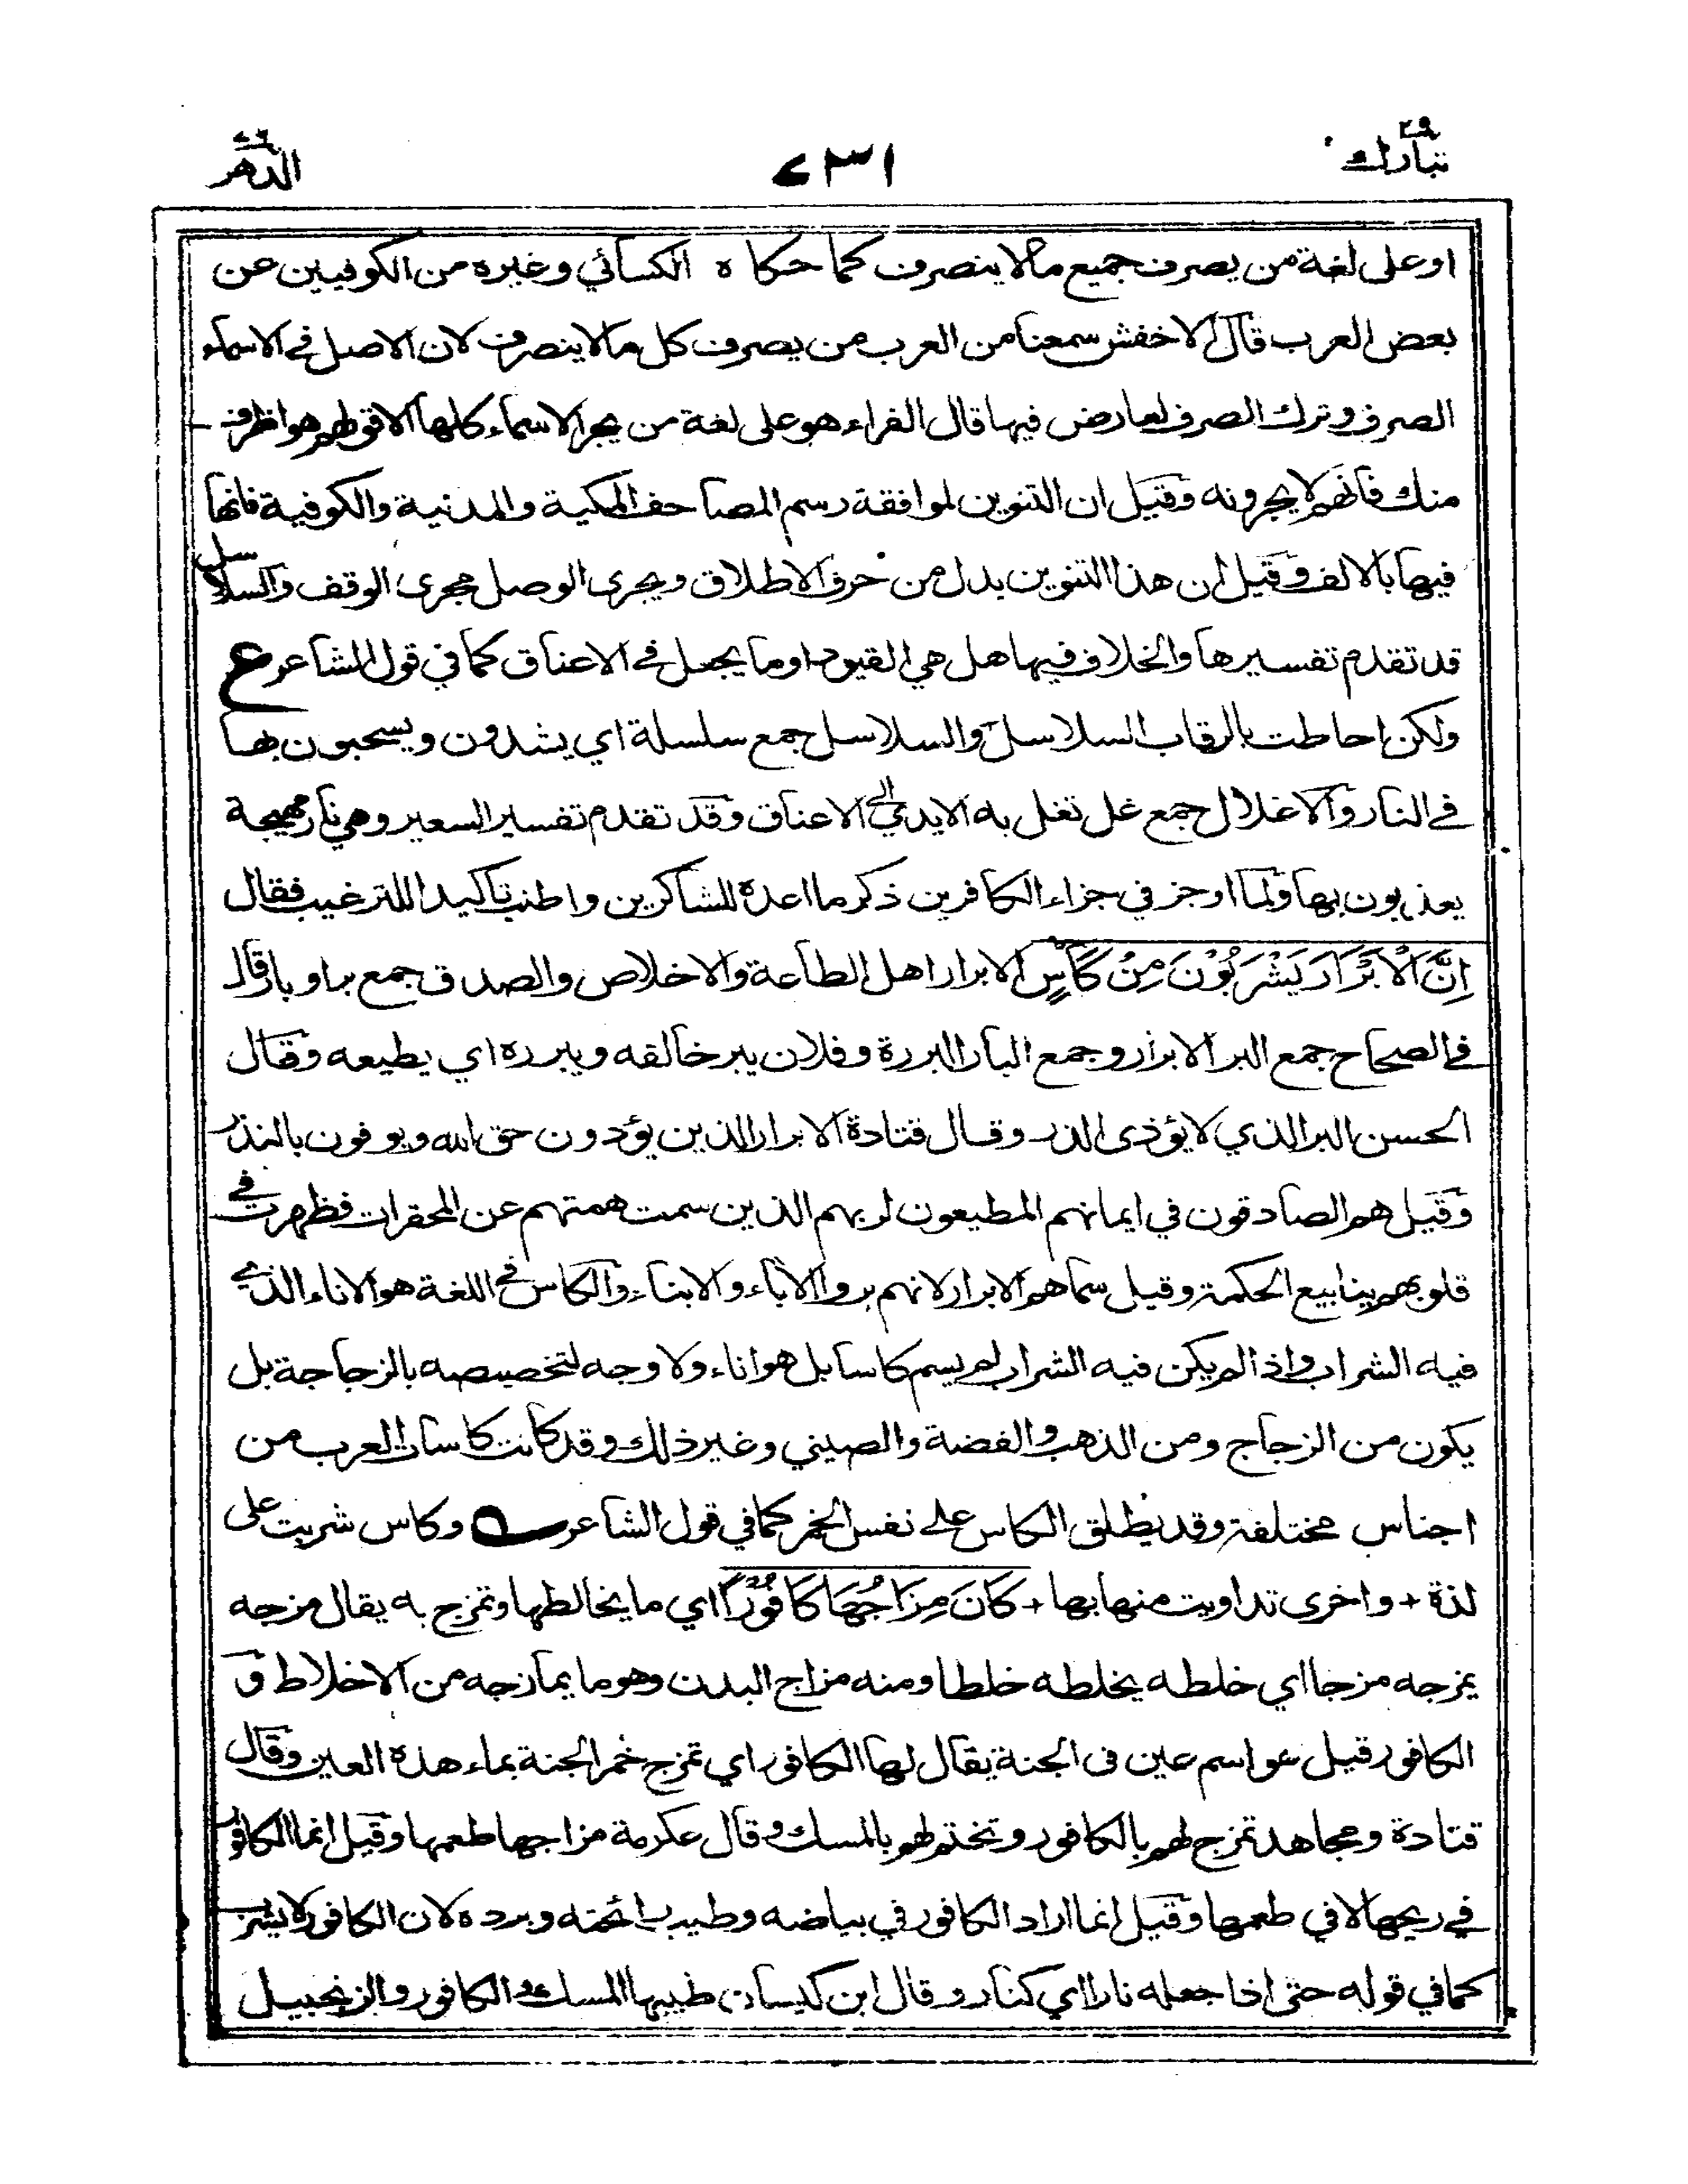 تبارك ٢٩
١٣٧
الدهر ٧٦
او على لغة من يصرف جميع ما لا ينصرف كما حكاه الكسائي وغيره من الكوفيين عن
بعض العرب قال الاخفش سمعنا من العرب من يصرف كل ما لا ينصرف لان الاصل في الاسماء
الصرف وترك الصرف لعارض فيها قال الفراء هو على لغة من يجر الاسماء كلها الا قولهم هو اظرف
منك فانهم لا يجرونه وقيل ان التنوين لموافقة رسم المصاحف المكية والمدنية والكوفية فانها
فيها بالالف وقيل ان هذا التنوين بدل من حرف الاطلاق ويجرى الوصل مجرى الوقف والسلاسل
قد تقدم تفسيرها والخلاف فيها هل هي القيود او ما يجعل في الاعناق كما في قول الشاعر ع
ولكن احاطت بالرقاب السلاسل والسلاسل جمع سلسلة اي يشدون ويسحبون بها
في النار والاغلال جمع غل تغل به الايدي الى الاعناق وقد تقدم تفسير السعير وهي نار مهيجة
يعذبون بها ولما اوجز في جزاء الكافرين ذكر ما اعده للشاكرين واطنب تاكيدا للترغيب فقال
اِنَّ الْاَبْرَارَ يَشْرَبُوْنَ مِنْ كَاْسٍ الابرار اهل الطاعة والاخلاص والصدق جمع بر او بار قال
في الصحاح جمع البر الابرار وجمع البار البررة وفلان يبر خالقه ويبرره اي يطيعه وقال
الحسن البر الذي لا يؤذى الذر وقال قتادة الابرار الذين يؤدون حق الله ويوفون بالنذر
وقيل هم الصادقون في ايمانهم المطيعون لربهم الذين سمت همتهم عن المحقرات فظهرت في
قلوبهم ينابيع الحكمة وقيل سماهم الابرار لانهم بروا الاباء والابناء والكاس في اللغة هو الاناء الذي
فيه الشراب واذا لم يكن فيه الشراب لم يسم كاسا بل هو اناء ولا وجه لتخصيصه بالزجاجة بل
يكون من الزجاج ومن الذهب والفضة والصيني وغير ذلك وقد كانت كاسات العرب من
اجناس مختلفة وقد يطلق الكاس على نفس الخمر كما في قول الشاعر وكاس شربت على
لذة + واخرى تداويت منها بها + كَانَ مِزَاجُهَا كَافُوْرًا اي ما يخالطها وتمزج به يقال مزجه
يمزجه مزجا اي خلطه يخلطه خلطا ومنه مزاج البدن وهو ما يمازجه من الاخلاط و
الكافور قيل هو اسم عين في الجنة يقال لها الكافور اي تمزج خمر الجنة بماء هذه العين وقال
قتادة ومجاهد تمزج لهم بالكافور وتختم لهم بالمسك وقال عكرمة مزاجها طعمها وقيل انما الكافور
في ريحها لا في طعمها وقيل انما اراد الكافور في بياضه وطيب رائحته وبرده لان الكافور لا يشرب
كما في قوله حتى اذا جعله نارا اي كنار وقال ابن كيسان طيبها المسك والكافور والزنجبيل